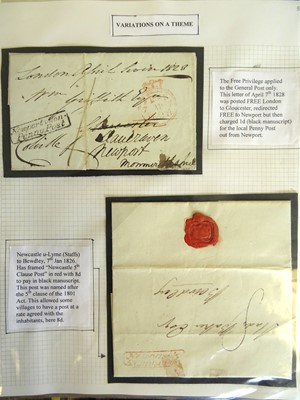 VARIATIONS ON A THEME
London April seven 1828
Wm
Griffith Esq
Newport Mon
Penny Post
Newport
Monmouthshire
The Free Privilege applied
to the General Post only.
This letter of April 7th 1828
was posted FREE London
to Gloucester, redirected
FREE to Newport but then
charged 1d (black manuscript)
for the local Penny Post
out from Newport.
Newcastle u-Lyme (Staffs)
to Bewdley, 7th Jan 1826.
Has framed "Newcastle 5th
Clause Post" in red with 8d
to pay in black manuscript.
This post was named after
the 5th clause of the 1801
Act. This allowed some
villages to have a post at a
rate agreed with the
inhabitants, here 8d.
Bewdley